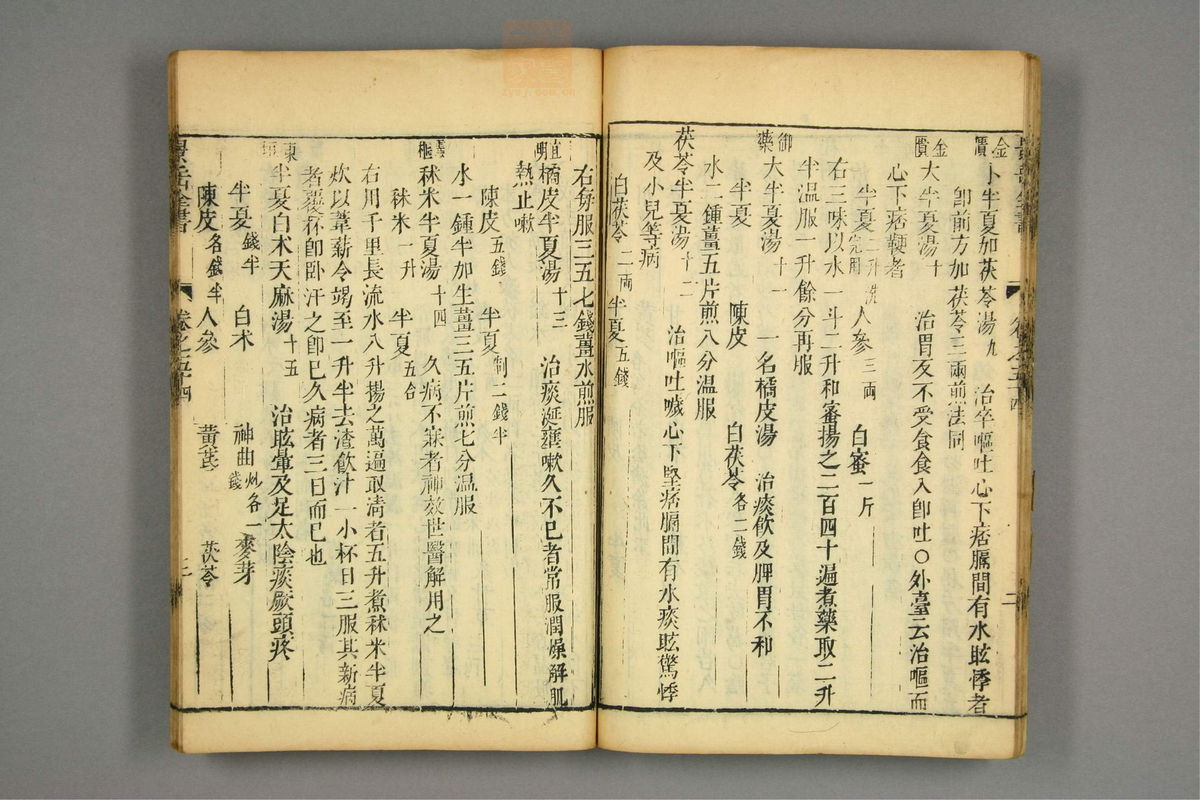 金匱
小半夏加茯苓湯九 治卒嘔吐心下痞膈間有水眩悸者
卽前方加茯苓三兩煎法同
金匱
大半夏湯十 治胃反不受食食入卽吐○外臺云治嘔而
心下痞鞕者
半夏二升洗完用 人參三兩 白蜜一斤
右三味以水一斗二升和蜜揚之二百四十遍煮藥取二升
半温服一升餘分再服
御藥
大半夏湯十一 一名橘皮湯 治痰飲及脾胃不和
半夏 陳皮 白茯苓各二錢
水二鍾薑五片煎八分温服
茯苓半夏湯十二 治嘔吐噦心下堅痞膈間有水痰眩驚悸
及小兒等病
白茯苓二兩 半夏五錢
右每服三五七錢薑水煎服
直明
橘皮半夏湯十三 治痰涎壅嗽久不已者常服潤燥解肌
熱止嗽
陳皮五錢 半夏制二錢半
水一鍾半加生薑三五片煎七分温服
靈樞
秫米半夏湯十四 久病不寐者神效世醫解用之
秫米一升 半夏五合
右用千里長流水八升揚之萬遍取淸者五升煮秫米半夏
炊以葦薪令竭至一升半去渣飲汁一小杯日三服其新病
者覆杯卽卧汗之卽已久病者三日而已也
東垣
半夏白朮天麻湯十五 治眩暈及足太陰痰厥頭疼
半夏錢半 白朮 神曲炒各一錢 麥芽
陳皮各錢半 人參 黃芪 茯苓
景岳全書 卷之五十四